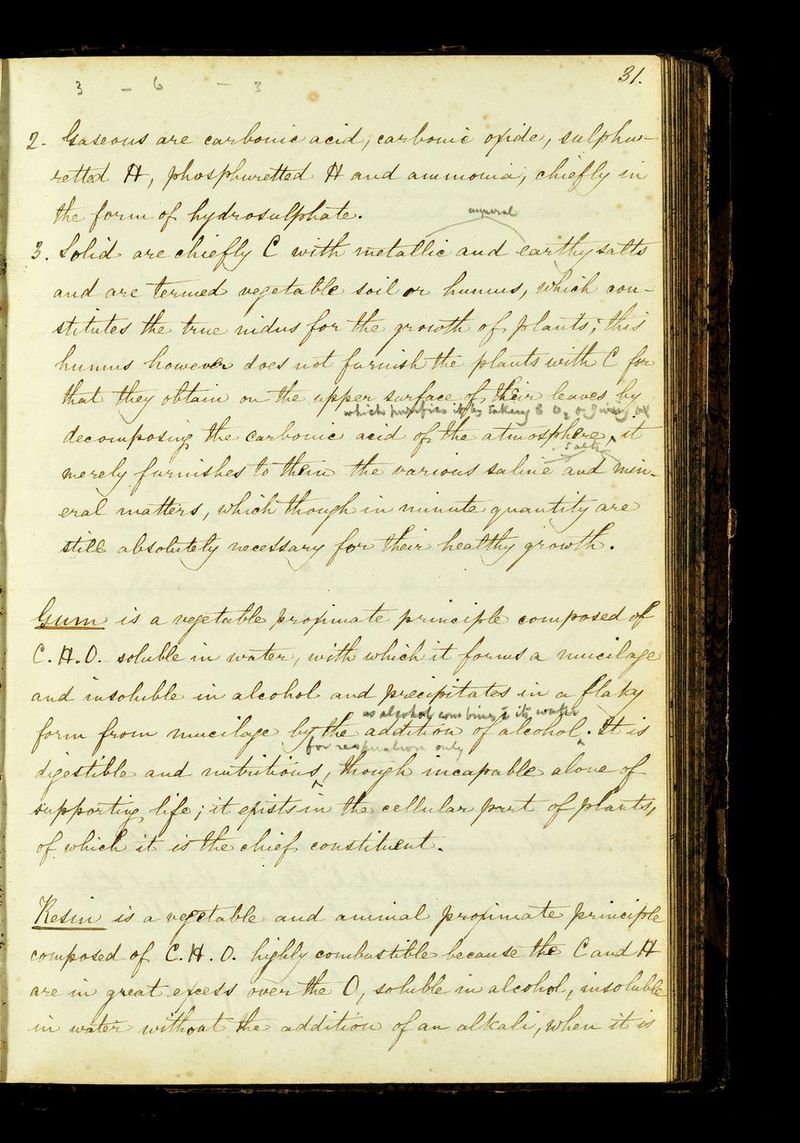 3 - 6 - 3
31.
2. Gaseous are carbonic acid, carbonic oxide, sulphu-
retted H, phosphuretted H and ammonia, chiefly in
the form of hydrosulphate.
mineral
3. Solid are chiefly C with metallic and earthy salts
and are termed vegetable soil or humus, which con-
stitutes the true nidus for the growth of plants; this
humus however does not furnish the plants with C for
that they obtain on the upper surface of their leaves by
which purifies it by taking C O2 & giving ox
decomposing the carbonic acid of the atmosphere, it
salts
merely furnishes to them the various saline and min-
eral matters, which though in minute quantity are
still absolutely necessary for their healthy growth.
Gum is a vegetable proximate principle composed of
C. H. O. soluble in water, with which it forms a mucilage
and insoluble in alcohol and precipitates in a flaky
as alcohol combines c̄ its water
form from mucilage by the addition of alcohol. It is
for respiration only
digestible and nutritious, though incapable alone of
supporting life; it exists in the cellular part of plants,
of which it is the chief constituent.
Resin is a vegetable and animal proximate principle
composed of C. H. O. highly combustible because the C and H
are in great excess over the O, soluble in alcohol, insoluble
in water without the addition of an alkali, when it is